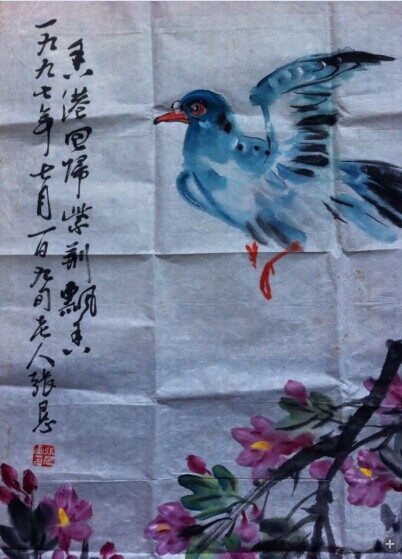 香港回歸紫荊飄香
一九九七年七月一日九旬老人張恳